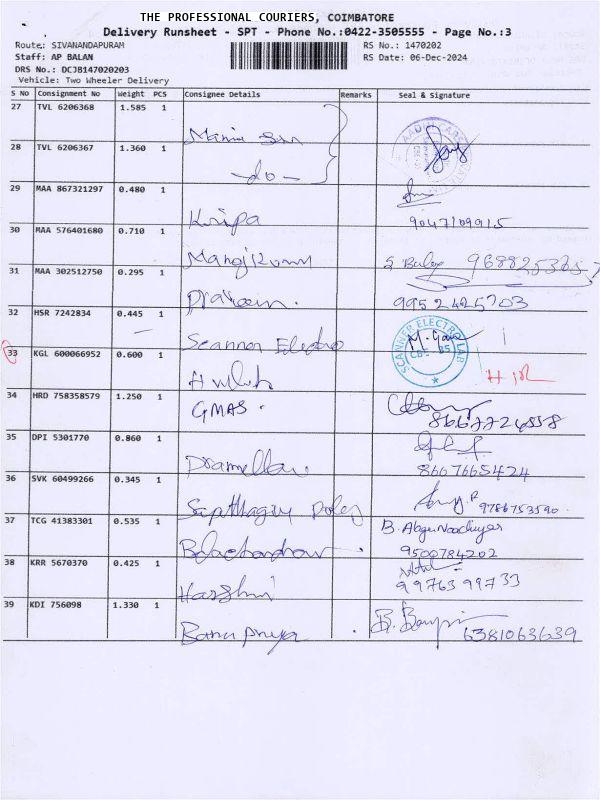 THE PROFESSIONAL COURIERS, COIMBATORE
Delivery Runsheet - SPT - Phone No.:0422-3505555 - Page No.:3
Route: SIVANANDAPURAM RS No.: 1470202
Staff: AP BALAN RS Date: 06-Dec-2024
DRS No.: DCJB147020203
Vehicle: Two Wheeler Delivery
S No Consignment No Weight PCS Consignee Details Remarks Seal & Signature
27 TVL 6206368 1.585 1
28 TVL 6206367 1.360 1
-do-
29 MAA 867321297 0.480 1
Kripa 9047109915
30 MAA 576401680 0.710 1
S. Balaji
31 MAA 302512750 0.295 1
Praveen. 9952425703
32 HSR 7242834 0.445 1
Scanner Electro SCANNER ELECTRO LAB
33 KGL 600066952 0.600 1
34 HRD 758358579 1.250 1
GMAS. 8667724558
35 DPI 5301770 0.860 1
8667665424
36 SVK 60499266 0.345 1
9786753590
37 TCG 41383301 0.535 1
Balachandran 9500784202
38 KRR 5670370 0.425 1
Harshni 99763 99733
39 KDI 756098 1.330 1
Banu priya 6381063639